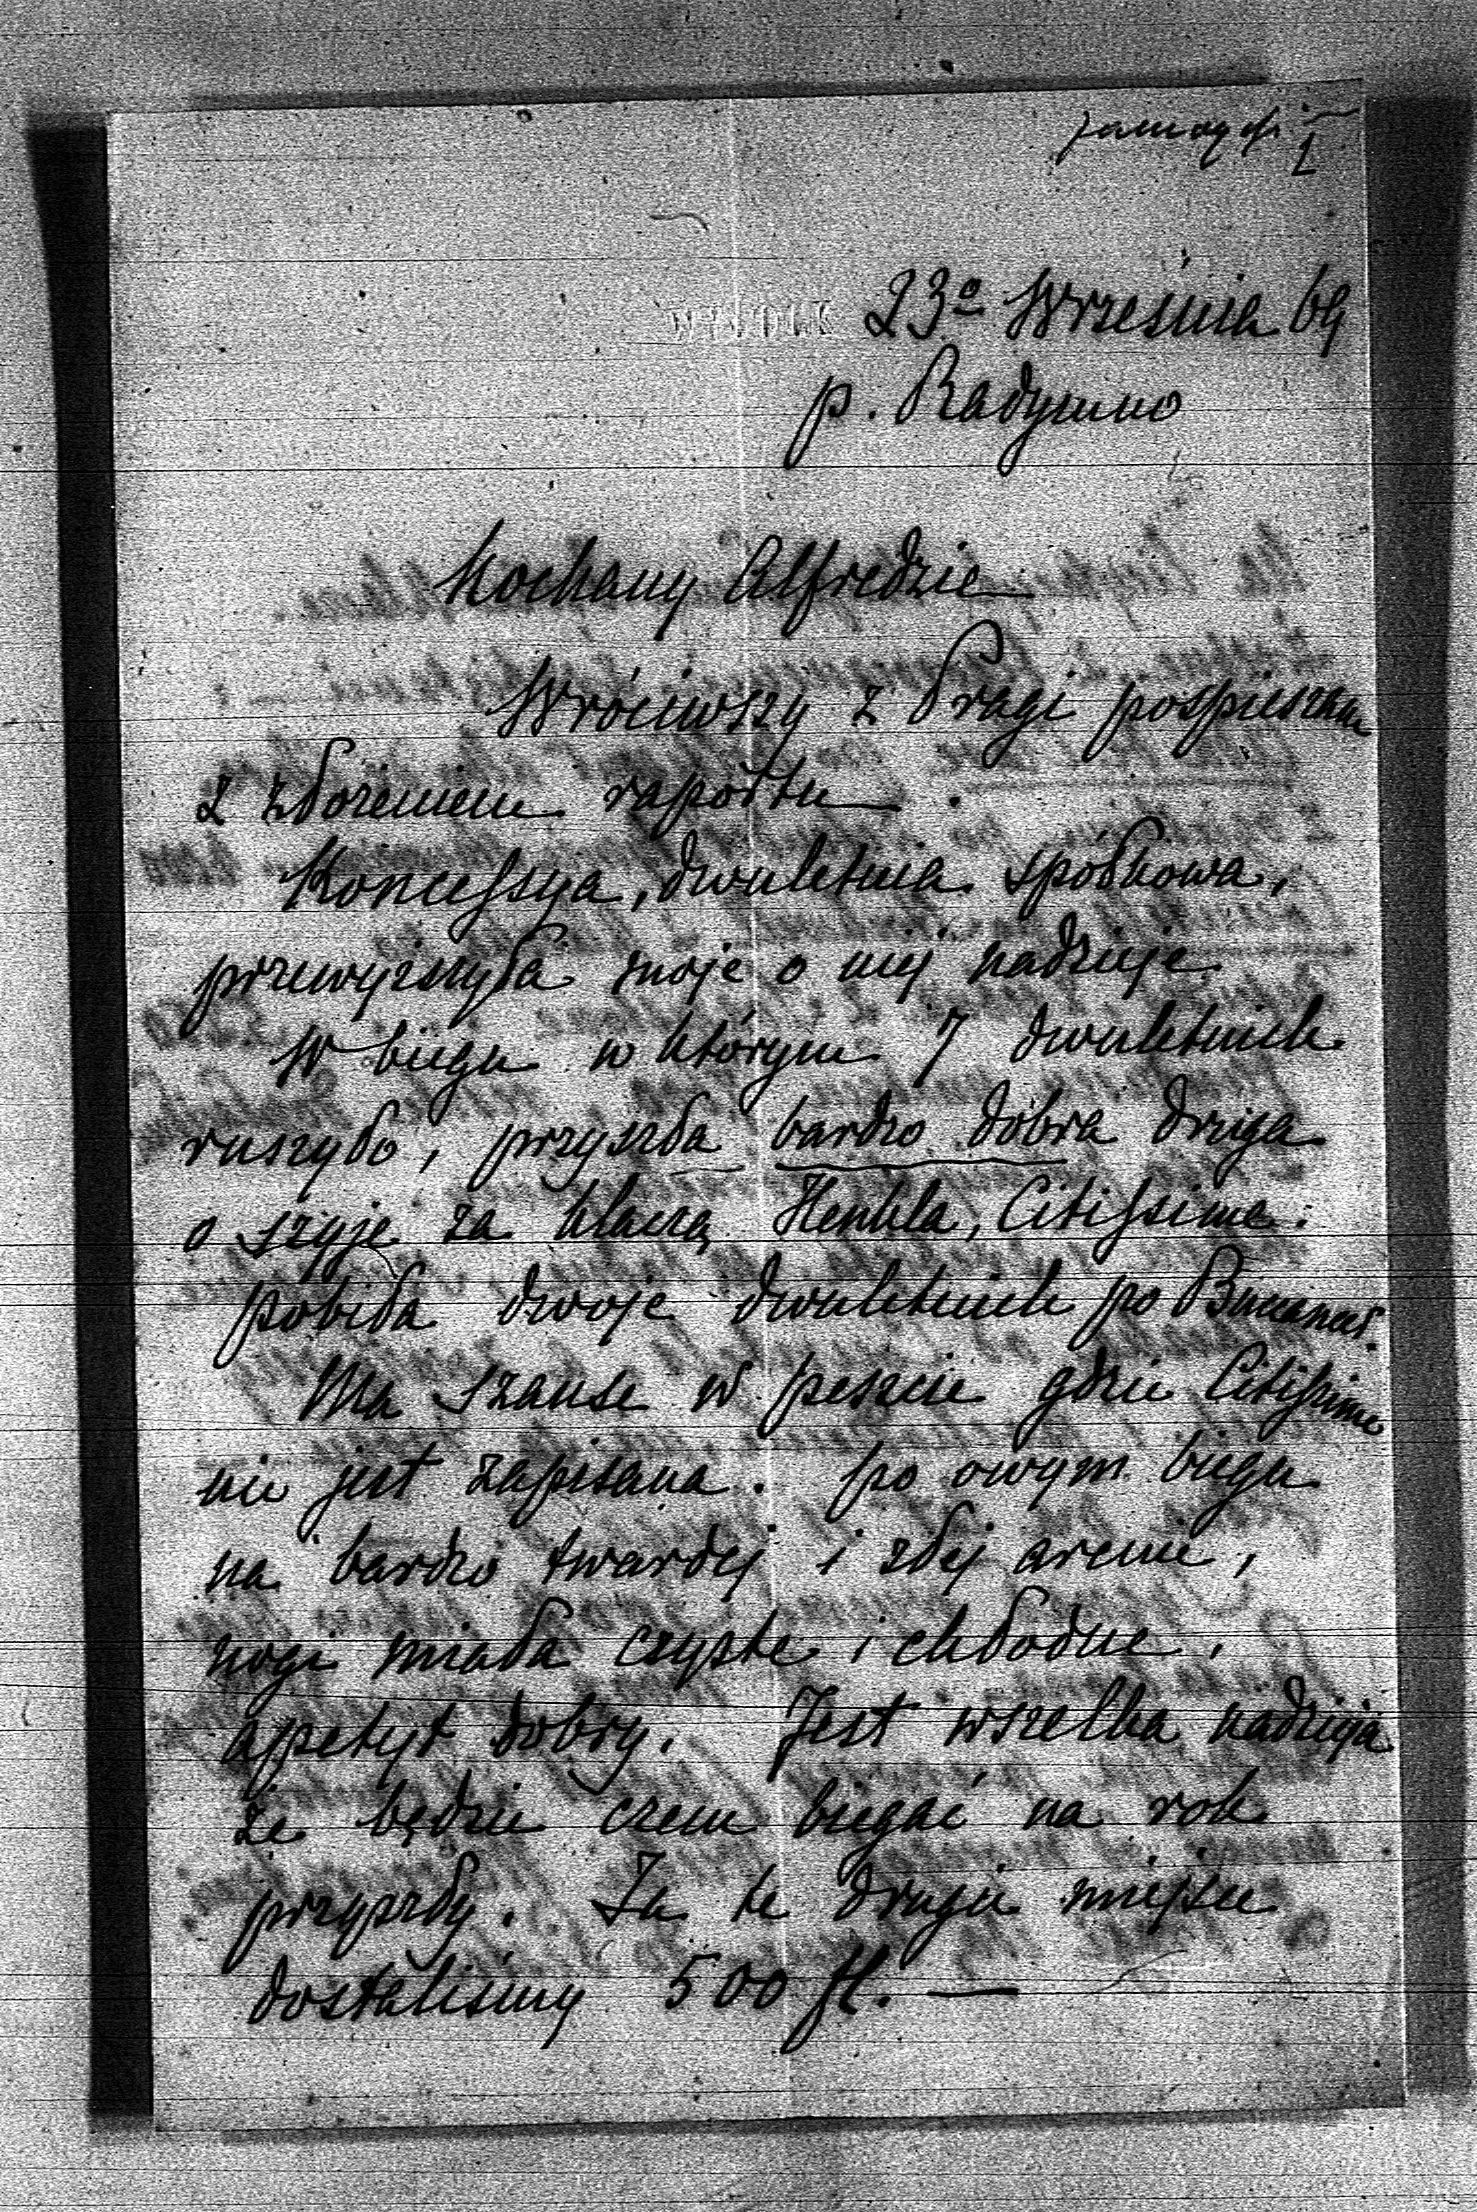 23º Września 69
p. Radymno
Kochany Alfredzie
Wróciwszy z Pragi pospieszam
z złożeniem raportu.
Koncessya, dwuletnia spółkowa,
przewyższyła moje o niej nadzieje.
W biegu w którym 7 dwuletnich
ruszyło, przyszła bardzo dobra druga
o szyję za klaczą Henkla, Citissime.
pobiła dwoje dwuletnich po Buccaneer.
Ma szanse w peszcie gdzie Citissime
nie jest zapisana. po owym biegu
na bardzo twardej i złej arenie,
nogi miała czyste i chłodne,
apetyt dobry. Jest wszelka nadzieja
że będzie czem biegać na rok
przyszły. Za te drugie miejsce
dostaliśmy 500 fl. —